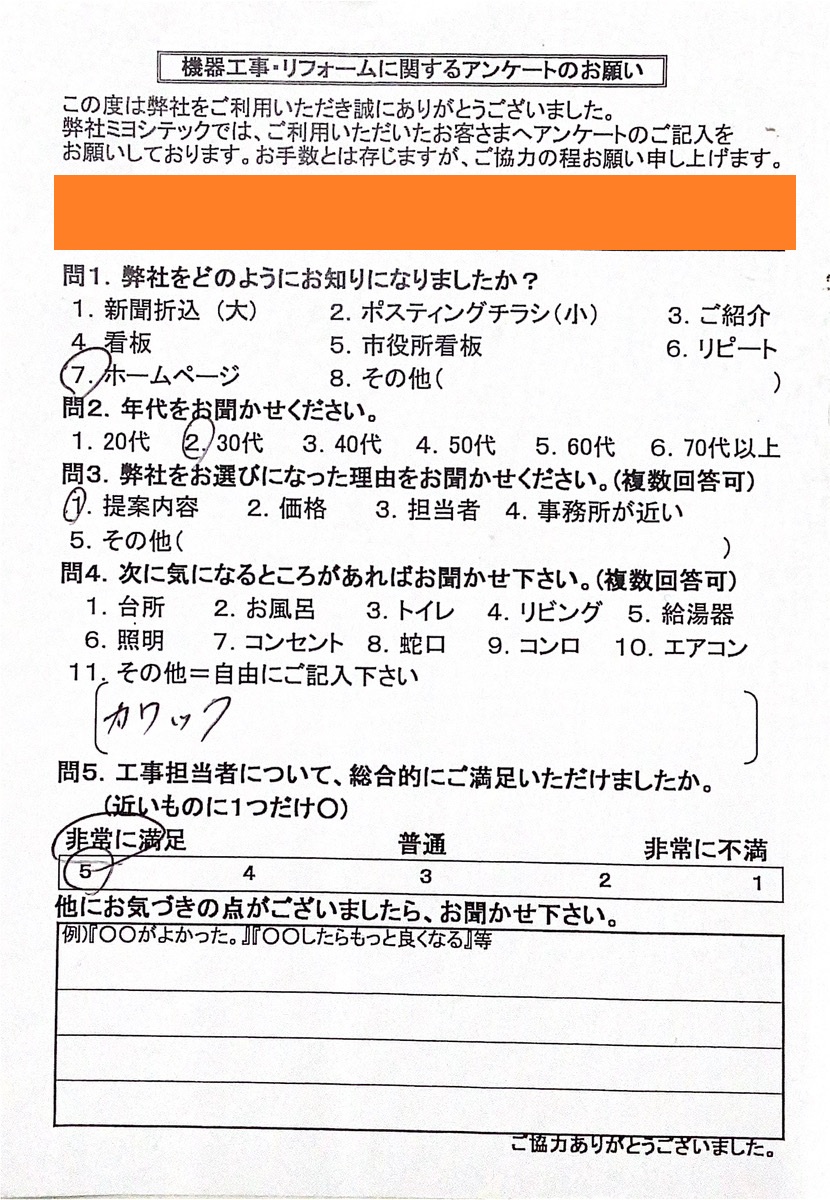 機器工事・リフォームに関するアンケートのお願い
この度は弊社をご利用いただき誠にありがとうございました。
弊社ミヨシテックでは、ご利用いただいたお客さまへアンケートのご記入を
お願いしております。お手数とは存じますが、ご協力の程お願い申し上げます。
問1. 弊社をどのようにお知りになりましたか?
1. 新聞折込 (大) 2. ポスティングチラシ(小) 3. ご紹介
4. 看板 5. 市役所看板 6. リピート
7. ホームページ 8. その他( )
問2. 年代をお聞かせください。
1. 20代 2. 30代 3. 40代 4. 50代 5. 60代 6. 70代以上
問3. 弊社をお選びになった理由をお聞かせください。(複数回答可)
1. 提案内容 2. 価格 3. 担当者 4. 事務所が近い
5. その他( )
問4. 次に気になるところがあればお聞かせ下さい。(複数回答可)
1. 台所 2. お風呂 3. トイレ 4. リビング 5. 給湯器
6. 照明 7. コンセント 8. 蛇口 9. コンロ 10. エアコン
11. その他=自由にご記入下さい
カワック
問5. 工事担当者について、総合的にご満足いただけましたか。
(近いものに1つだけ〇)
非常に満足 普通 非常に不満
5 4 3 2 1
他にお気づきの点がございましたら、お聞かせ下さい。
例)『〇〇がよかった。』『〇〇したらもっと良くなる』等
ご協力ありがとうございました。